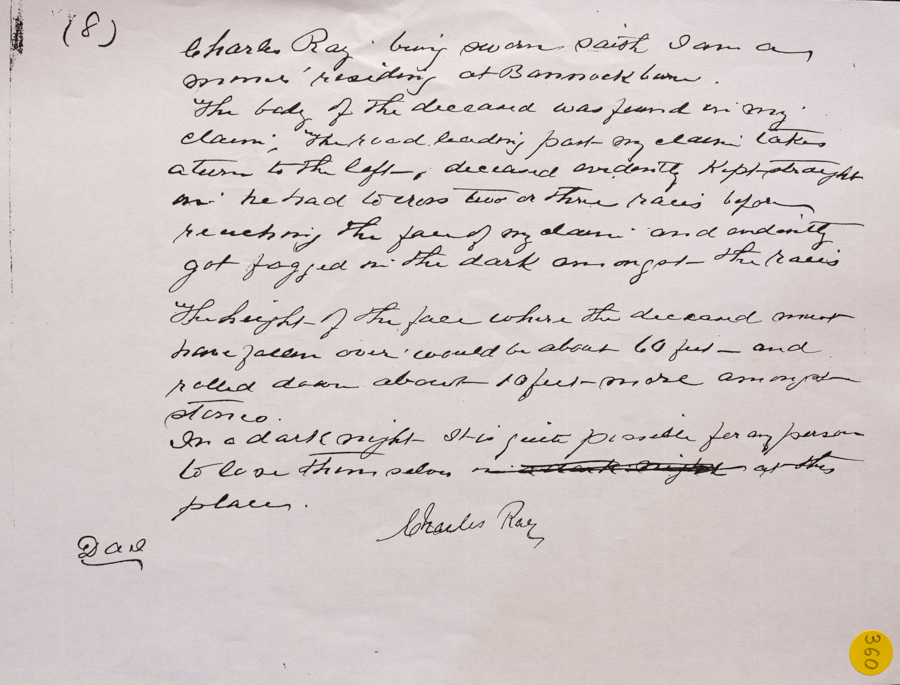 (8)
Charles Ray being sworn saith I am a
miner residing at Bannockburn.
The body of the deceased was found in my
claim, The road leading past my claim takes
a turn to the left, deceased evidently Kept straight
on he had to cross two or three races before
reaching the face of my claim and evidently
got fogged in the dark amongst the races
The height of the face where the deceased must
have fallen over would be about 60 feet and
rolled down about 10 feet more amongst
stones.
In a dark night It is quite possible for any person
to lose themselves in a dark night at this
place.
Charles Ray
360